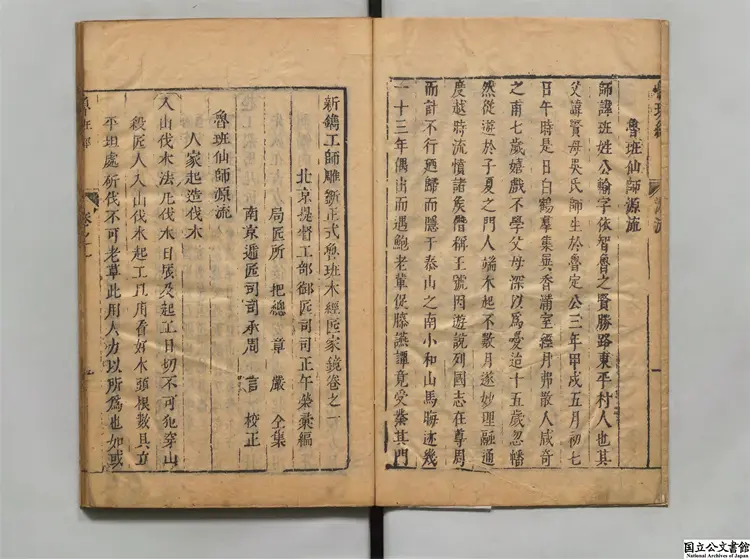 魯班仙師源流
師諱班姓公輸字依智魯之賢勝路東平村人也其
父諱賢母吳氏師生於魯定公三年甲戌五月初七
日午時是日白鶴羣集異香滿室經月弗散人咸奇
之甫七歲嬉戲不學父母深以爲憂迨十五歲忽幡
然從遊於子夏之門人端木起不數月遂妙理融通
度越時流憤諸矦僣稱王號因遊說列國志在尊周
而計不行廼歸而隱于泰山之南小和山焉晦迹幾
一十三年偶出而遇鮑老輩促膝讌譚竟受業其門
新鐫工師雕斵正式魯班木經匠家鏡卷之一
北京提督工部御匠司司正午榮彙編
局匠所把總章嚴仝集
南京遞匠司司承周言校正
魯班仙師源流
人家起造伐木
入山伐木法凡伐木日辰及起工日切不可犯穿山
殺匠人入山伐木起工且用看好木頭根數具立
平坦處斫伐不可老草此用人力以所爲也如或
國立公文書館
National Archives of Japan